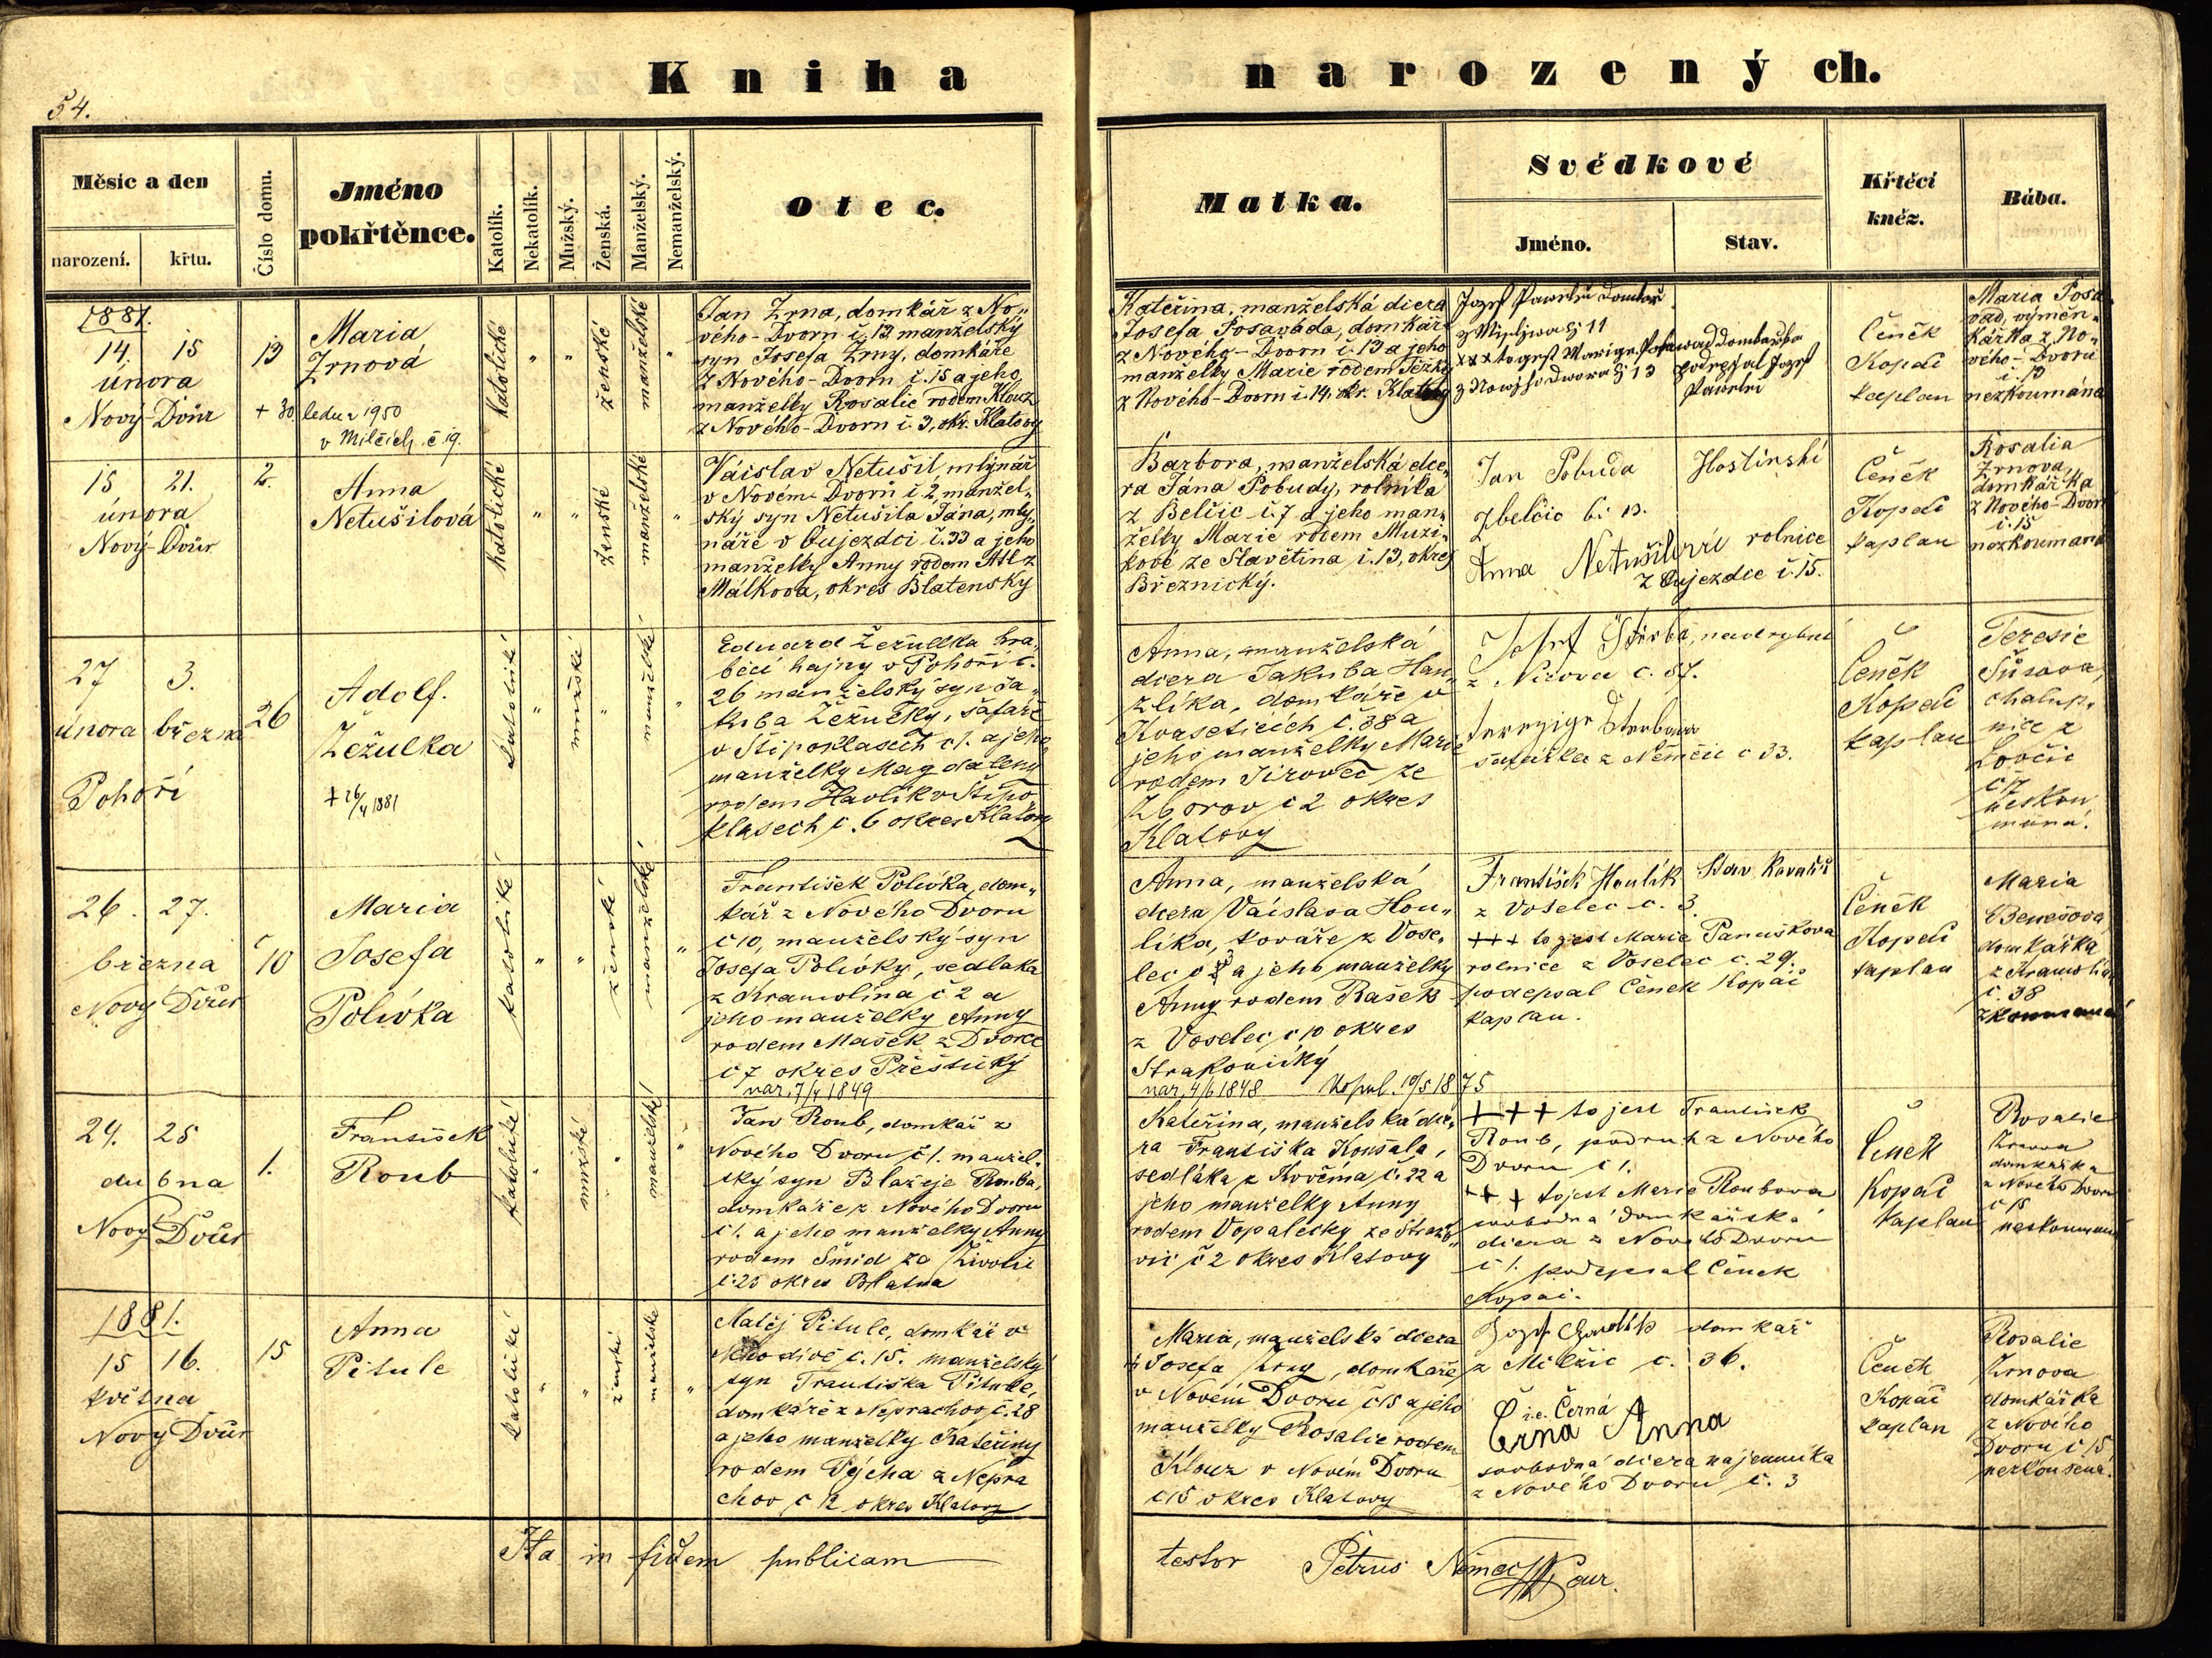 54.
Kniha narozených.
Měsíc a den
narození.
křtu.
Číslo domu.
Jméno
pokřtěnce.
Katolík.
Nekatolík.
Mužský.
Ženská.
Manželský.
Nemanželský.
Otec.
Matka.
Svědkové
Jméno.
Stav.
Křtěcí
kněz.
Bába.
1881.
14. 15
února
Nový-Dvůr
13
Maria
Zrnová
+ 30 ledna 1950
v Milčích č 19.
katolické
"
"
ženské
manželské
"
Jan Zrna, domkář z No-
vého-Dvoru č. 13 manželský
syn Josefa Zrny, domkáře
z Nového-Dvoru č. 15 a jeho
manželky Rosalie rodem Klouz
z Nového-Dvoru č. 3, okr. Klatovy
Kateřina, manželská dcera
Josefa Posaváda, domkáře
z Nového-Dvoru č. 13 a jeho
manželky Marie rodem Težky
z Nového-Dvoru č. 14, okr. Klatovy
Čeněk
Kopač
kaplan
Maria Posa-
vad, výměn-
kářka z No-
vého-Dvoru
č. 13
nezkoumána
15 21.
února
Nový-Dvůr
2.
Anna
Netušilová
katolické
"
"
ženské
manželské
"
Václav Netušil, mlýnář
v Novém-Dvoru č. 2, manžel-
ský syn Netušila Jána, mly-
náře v Oujezdci č. 33 a jeho
manželky Anny rodem Atl z
Málkova, okres Blatensky
Barbora, manželská dce-
ra Jána Pobudy, rolníka
z Belčic č. 7 a jeho man-
želky Marie rodem Muzi-
kové ze Slavětina č. 13, okres
Březnický.
Jan Pobuda Hostinski
Zbelčic č. 13.
Anna Netušilová rolnice
z Oujezdce č. 15.
Čeněk
Kopač
kaplan
Rosalia
Zrnova,
domkářka
z Nového-Dvoru
č. 15
nezkoumana
27 3.
února března
Pohoří
26
Adolf.
Žežulka
+ 26/4 1881
katolické
"
mužské
"
manželské
"
Eduard Žežulka hra-
běcí hajny v Pohoří č.
26 manželský syn Ja-
kuba Žežulky, šafáře
v Štipoklasech č 1. a jeho
manželky Magdaleny
rodem Havlik v Štipo
klasech č. 6 okres Klatovy
Anna, manželská
dcera Jakuba Han-
zlíka, domkáře v
Kvaseticích č. 38 a
jeho manželky Marie
rodem Jirovec ze
Zborov č 2 okres
Klatovy
z Nizova č. 87.
šafářka z Němčic č 33.
Čeněk
Kopač
kaplan
Terezie
chalup-
nice z
Lovčic
26. 27.
března
Nový Dvůr
č 10
Maria
Josefa
Polívka
katolické
"
"
ženské
manželské
"
František Polívka, dom-
kář z Nového Dvoru
č 10, manželský syn
Josefa Polívky, sedlaka
z Kramolína č 2 a
jeho manželky Anny
rodem Mašek z Dvorce
č 7 okres Přeštický
nar. 7/4 1849
Anna, manželská
dcera Václava Hou-
lika, kováře z Vose-
lec č 3 a jeho manželky
Anny rodem Rašek
z Voselec č 10 okres
Strakonický
nar. 4/6 1848 Kopul. 10/5 1875
František Houlík Stav. Kovařů
z Voselec č. 3.
+++ to jest Marie Panuškova
rolnice z Voselec č. 29.
podepsal Čeněk Kopač
kaplan.
Čeněk
Kopač
kaplan
Maria
Benešova
domkářka
z Kramolína
č. 38
zkoumaná
24. 25
dubna
Nový Dvůr
1.
František
Roub
katolické
"
mužské
"
manželské
"
Jan Roub, domkář z
Nového Dvoru č 1. manžel-
ský syn Blažeje Rouba,
domkáře z Nového Dvoru
č 1. a jeho manželky Anny
rodem Šmid ze Životic
č 25 okres Blatna
Kateřina, manželská dce-
ra Františka Koušala,
sedláka z Kovčína č. 22 a
jeho manželky Anny
rodem Vopalecky ze Straž-
vic č 2 okres Klatovy
+++ to jest František
Roub, podruh z Nového
Dvoru č 1.
+++ to jest Marie Roubova
svobodná domkářská
dcera z Nového Dvoru
č 1. podepsal Čeněk
Kopač.
Čeněk
Kopač
kaplan
Rosalie
Zrnova
domkářka
z Nového Dvoru
č 15
neskoumaná
1881.
15 16.
května
Nový Dvůr
15
Anna
Pitule
katolické
"
"
ženské
manželské
"
Matěj Pitule, domkář v
Nehodivě č. 15. manželský
syn Františka Pitule,
domkáře z Neprachov, č. 28
a jeho manželky Kateřiny
rodem Vejcha z Nepra
chov č 12 okres Klatovy
Maria, manželská dcera
Josefa Zrny, domkáře
v Novém Dvoru č 15 a jeho
manželky Rosalie rodem
Klouz v Novém Dvoru
č 15 okres Klatovy
domkář
z Milčic č. 36.
Č i.e. Černá
Črna Anna
svobodná dcera najemníka
z Nového Dvoru č. 3
Čeněk
Kopač
kaplan
Rosalie
Zrnova
domkářka
z Nového
Dvoru č 15
nezkoušená.
Ita in fidem publicam testor Petrus Němec